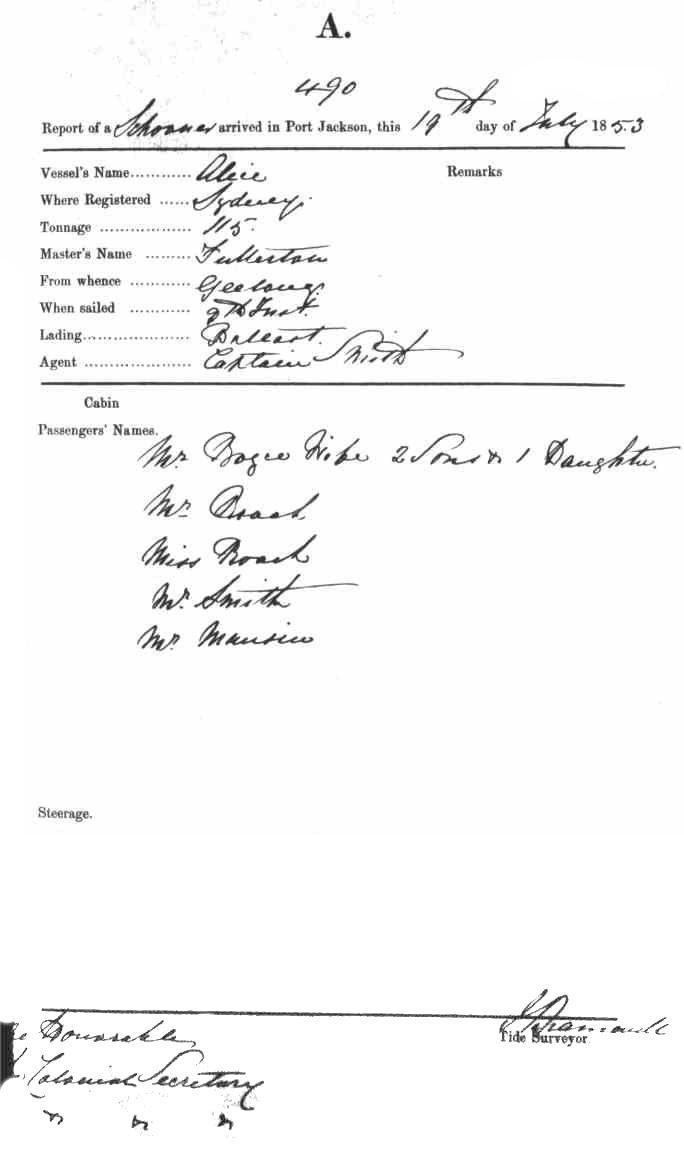 A.
490
Report of a Schooner arrived in Port Jackson, this 19th day of July 1853
Vessel's Name............ Alice Remarks
Where Registered ...... Sydney.
Tonnage .................. 115.
Master's Name ......... Fullerton
From whence ............ Geelong.
When sailed ............ 9th Inst.
Lading..................... Ballast.
Agent ..................... Captain Smith
Cabin
Passengers' Names.
Mr Wife 2 Sons & 1 Daughter.
Mr. Roach
Miss Roach
Mr. Smith
Mr
Steerage.
Tide Surveyor
Honorable
Colonial Secretary
& & &